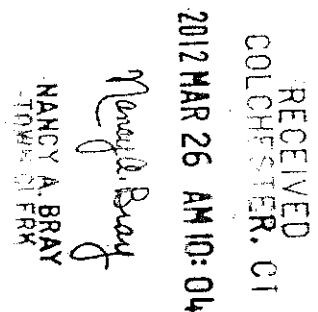 RECEIVED
COLCHESTER, CT
2012 MAR 26 AM 10:04
Nancy A. Bray
NANCY A. BRAY
TOWN CLERK